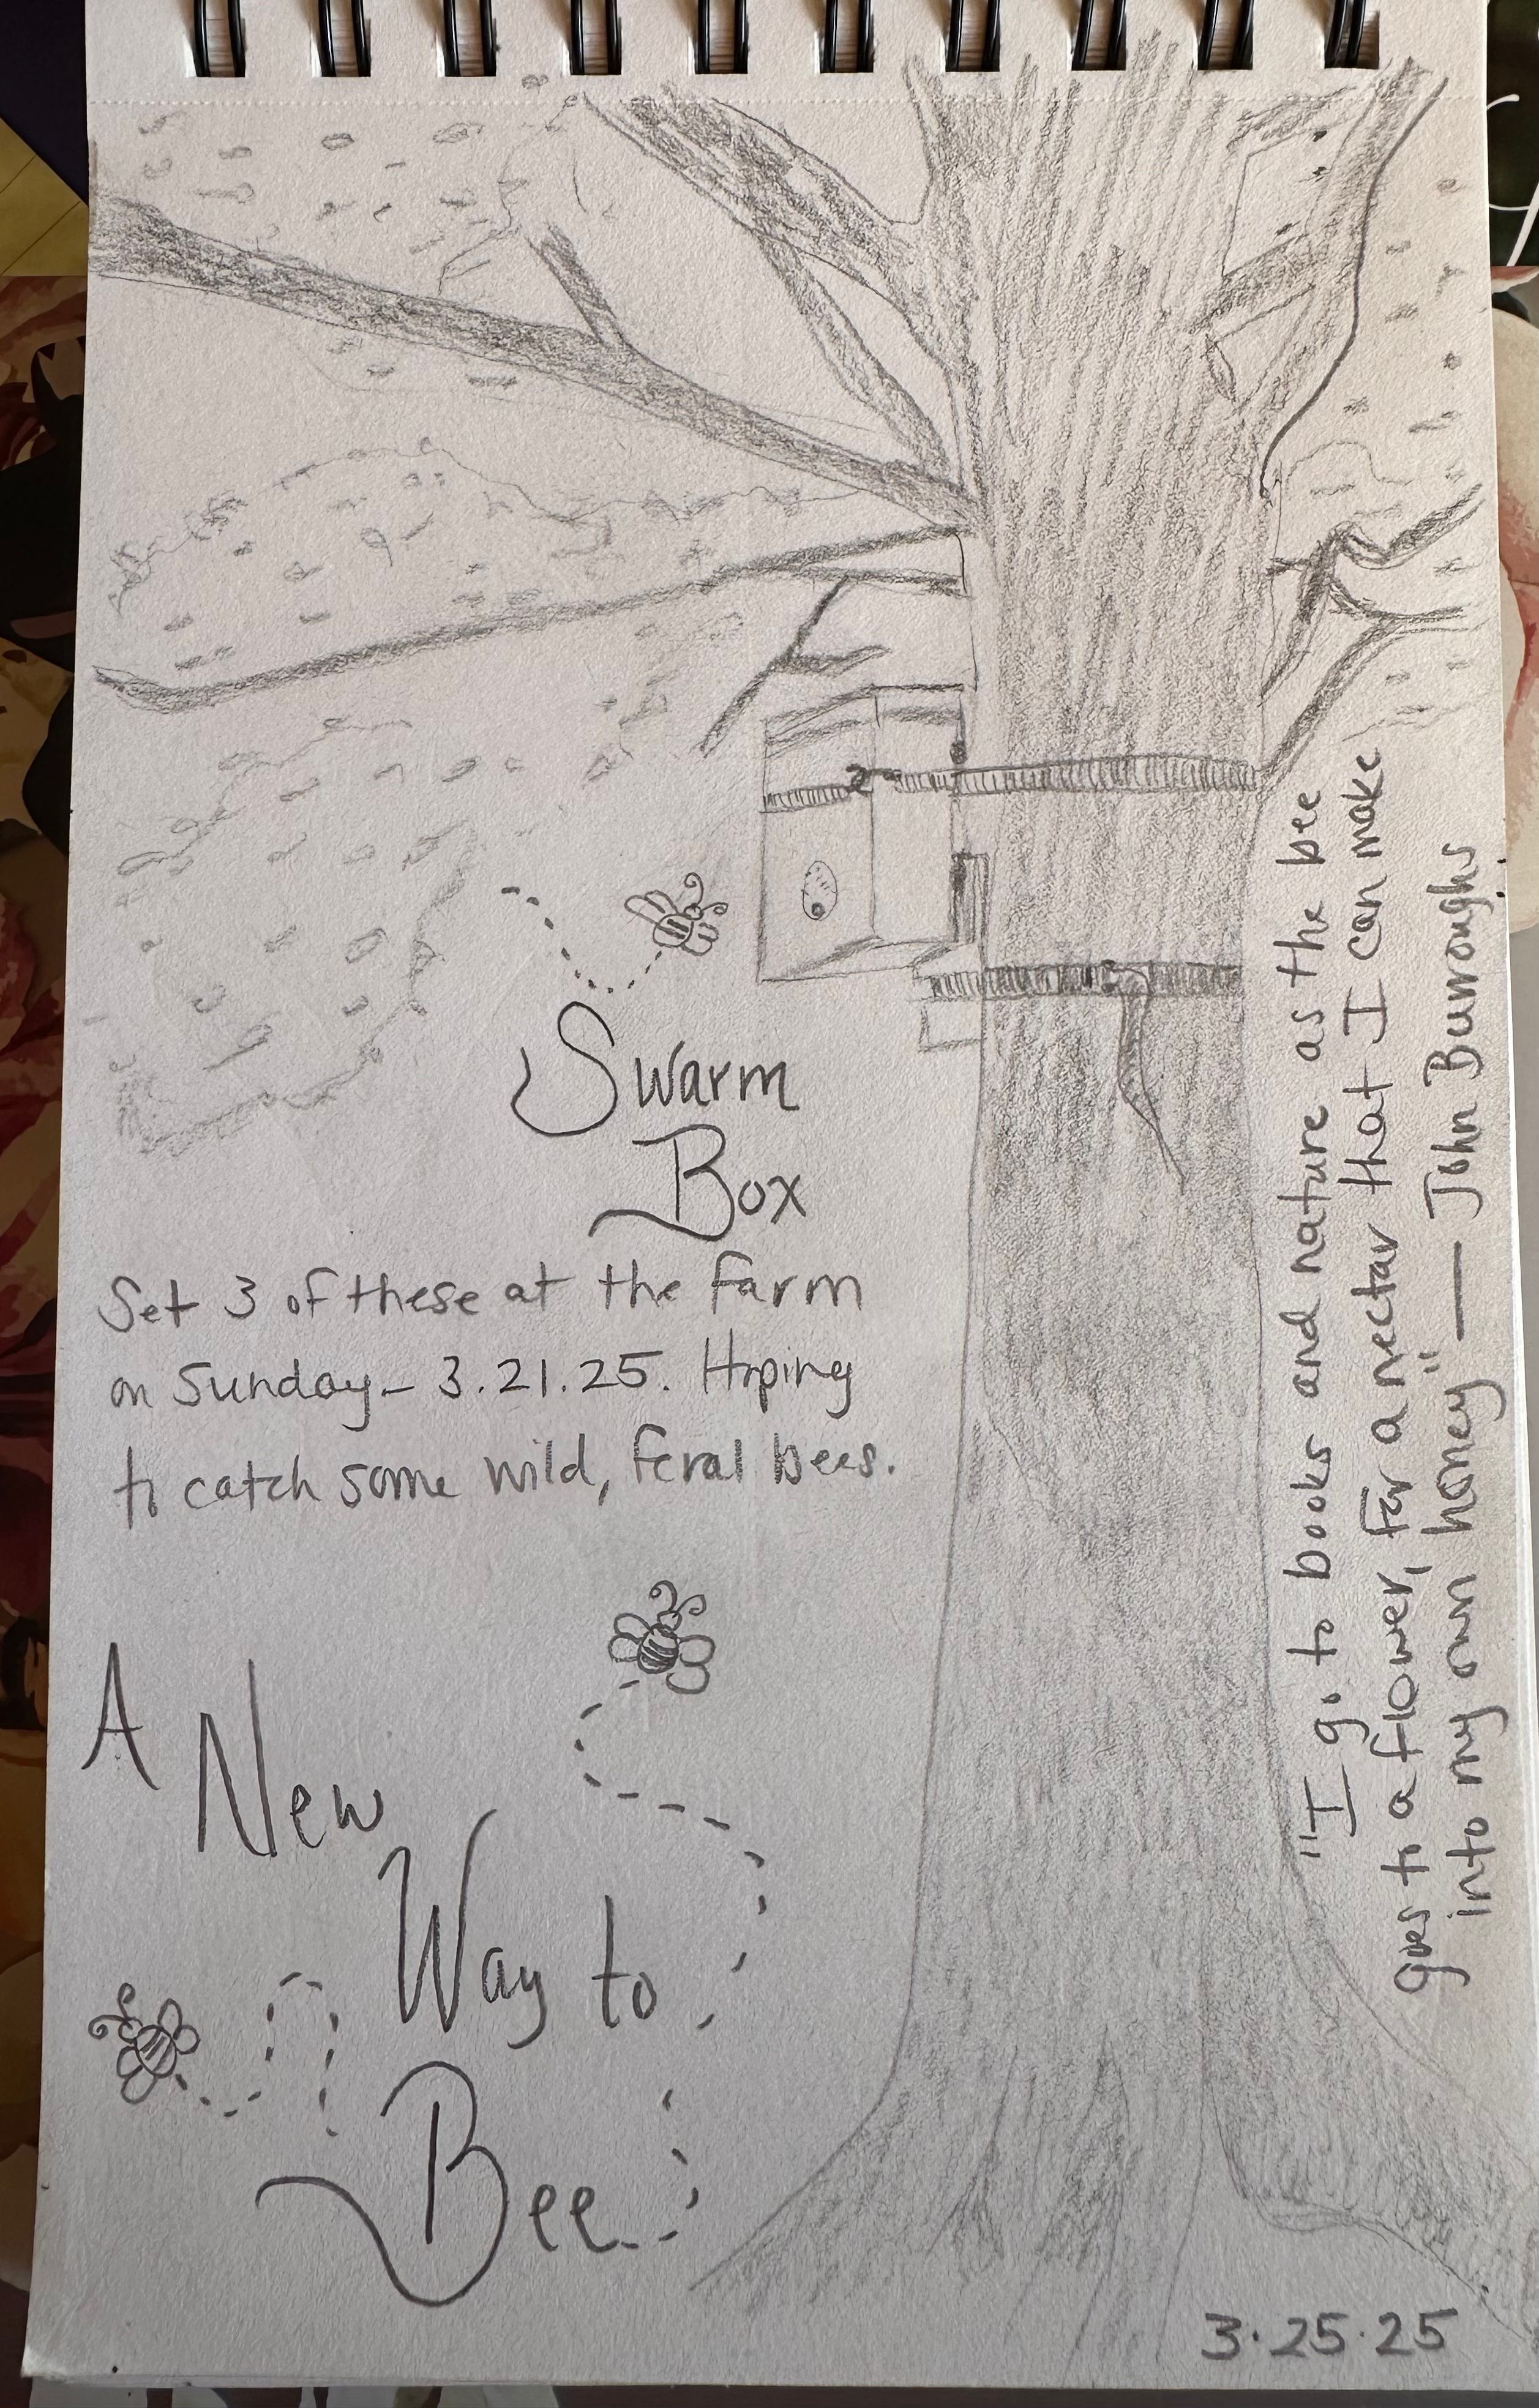 Swarm
Box
Set 3 of these at the farm
on Sunday - 3.21.25. Hoping
to catch some wild, feral bees.
A
New
Way to
Bee
"I go to books and nature as the bee
goes to a flower, for a nectar that I can make
into my own honey" — John Burroughs
3.25.25